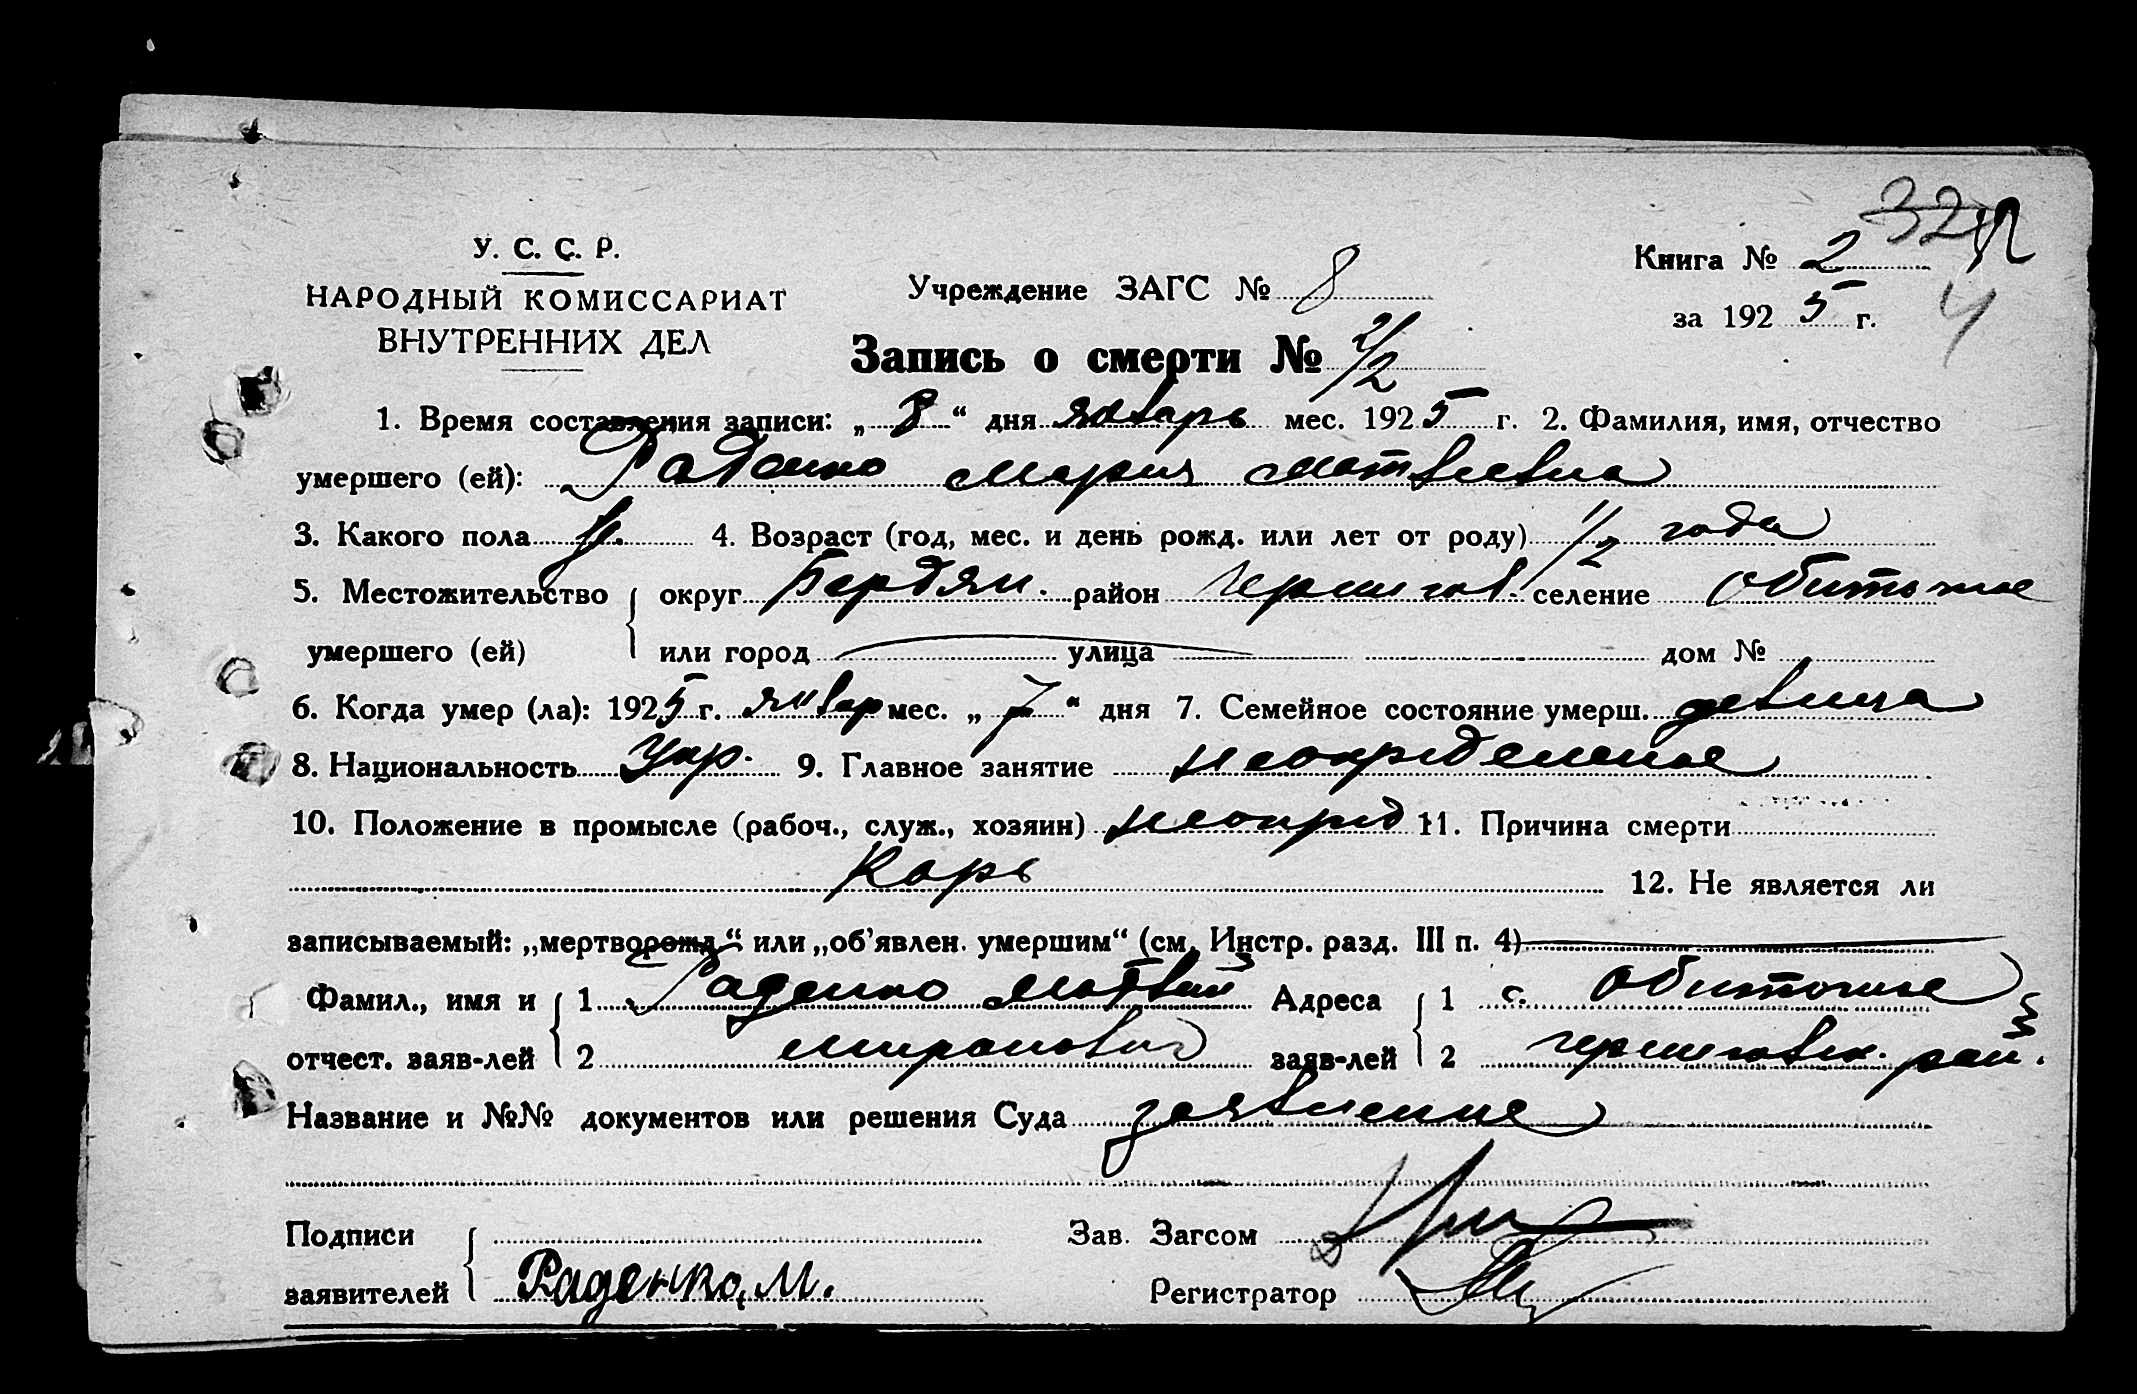 У. С. С. Р.
НАРОДНЫЙ КОМИССАРИАТ
ВНУТРЕННИХ ДЕЛ
Учреждение ЗАГС № 8
Книга № 2
за 1925 г.
4
Запись о смерти № 2/2
1. Время составления записи: „ 8 “ дня январь мес. 1925 г. 2. Фамилия, имя, отчество
умершего (ей): Раденко Мария Матвеевна
3. Какого пола ж. 4. Возраст (год, мес. и день рожд. или лет от роду) 1/2 года
5. Местожительство округ Бердян. район Чернигов. селение Обиточное
умершего (ей) или город улица дом №
6. Когда умер (ла): 1925 г. январ мес. „ 7 “ дня 7. Семейное состояние умерш. девица
8. Национальность Укр. 9. Главное занятие неопределенное
10. Положение в промысле (рабоч., служ., хозяин) неопред 11. Причина смерти
Корь 12. Не является ли
записываемый: „мертворожд.“ или „об’явлен. умершим“ (см. Инстр. разд. III п. 4)
Фамил., имя и 1 Раденко Матвей Адреса 1 с. Обиточное
отчест. заяв-лей 2 Миронович заяв-лей 2 Черниговск. рай.
Название и №№ документов или решения Суда заявление
Подписи Зав. Загсом
заявителей Раденко, М. Регистратор